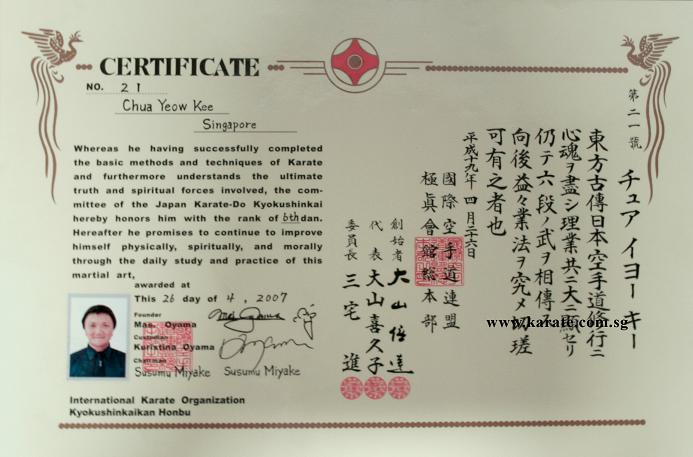 CERTIFICATE
NO. 21
Chua Yeow Kee
Singapore
Whereas he having successfully completed
the basic methods and techniques of Karate
and furthermore understands the ultimate
truth and spiritual forces involved, the com-
mittee of the Japan Karate-Do Kyokushinkai
hereby honors him with the rank of 6th dan.
Hereafter he promises to continue to improve
himself physically, spiritually, and morally
through the daily study and practice of this
martial art,
awarded at
This 26 day of 4, 2007
Founder
Mas. Oyama
Custodian
Kuristina Oyama
Chairman
Susumu Miyake Susumu Miyake
International Karate Organization
Kyokushinkaikan Honbu
第二一號
チュア イヨー キー
東方古傳日本空手道修行ニ
心魂ヲ盡シ理業共ニ大ニ顯セリ
仍テ六段ノ武ヲ相傳
向後益々業法ヲ究メ 瑳
可有之者也
平成十九年 四月二十六日
國際空手道連盟
極真會館総本部
創始者 大山倍達
代表 大山喜久子
委員長 三宅 進
www.karate.com.sg